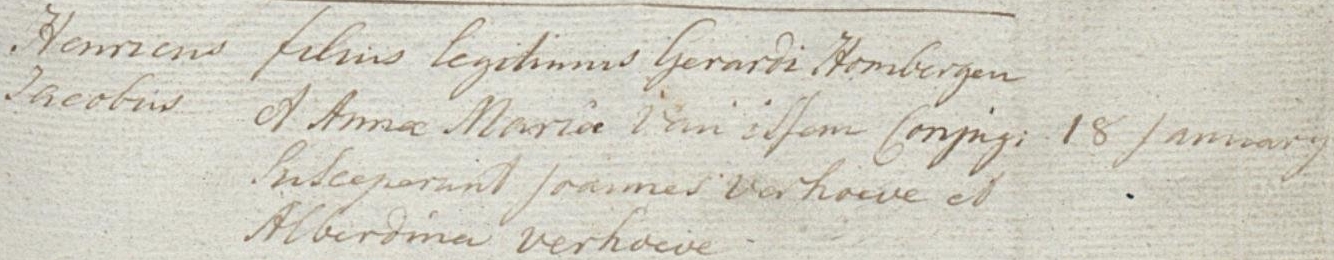 Henricus filius legitimus Gerardi Hombergen
Jacobus et Annæ Mariæ Van issem Conjugi 18 January
Susceperunt Joannes Verhoeve et
Alberdina verhoeve